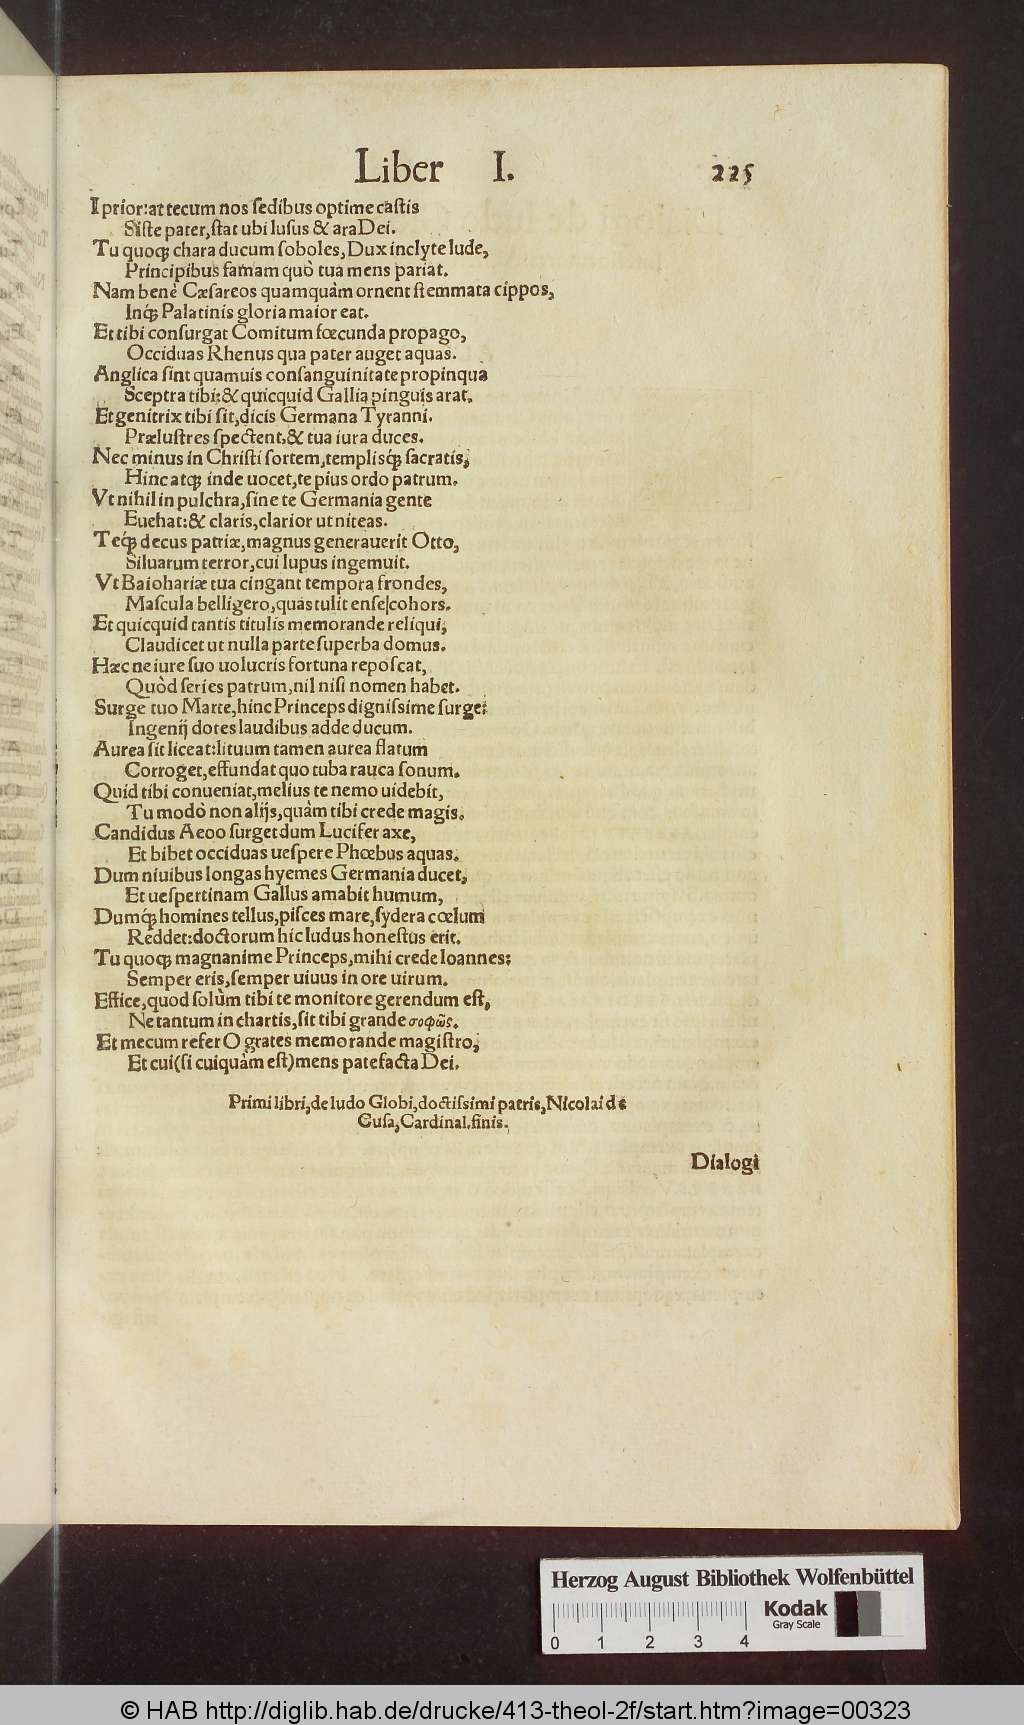 Liber I. 225
I prior: at tecum nos ſedibus optime caſtis
Siſte pater, ſtat ubi luſus & ara Dei.
Tu quoqꝫ chara ducum ſoboles, Dux inclyte lude,
Principibus famam quò tua mens pariat.
Nam benè Cæſareos quamquàm ornent ſtemmata cippos,
Inqꝫ Palatinis gloria maior eat.
Et tibi conſurgat Comitum fœcunda propago,
Occiduas Rhenus qua pater auget aquas.
Anglica ſint quamuis conſanguinitate propinqua
Sceptra tibi: & quicquid Gallia pinguis arat.
Et genitrix tibi ſit, dicis Germana Tyranni.
Præluſtres ſpectent, & tua iura duces.
Nec minus in Chriſti ſortem, templisqꝫ ſacratis,
Hinc atqꝫ inde uocet, te pius ordo patrum.
Vt nihil in pulchra, ſine te Germania gente
Euehat: & claris, clarior ut niteas.
Teqꝫ decus patriæ, magnus generauerit Otto,
Siluarum terror, cui lupus ingemuit.
Vt Baiohariæ tua cingant tempora frondes,
Maſcula belligero, quas tulit enſe cohors.
Et quicquid tantis titulis memorande reliqui,
Claudicet ut nulla parte ſuperba domus.
Hæc ne iure ſuo uolucris fortuna repoſcat,
Quòd ſeries patrum, nil niſi nomen habet.
Surge tuo Marte, hinc Princeps digniſsime ſurge:
Ingenij dotes laudibus adde ducum.
Aurea ſit liceat: lituum tamen aurea flatum
Corroget, effundat quo tuba rauca ſonum.
Quid tibi conueniat, melius te nemo uidebit,
Tu modò non alijs, quàm tibi crede magis.
Candidus Aeoo ſurget dum Lucifer axe,
Et bibet occiduas ueſpere Phœbus aquas.
Dum niuibus longas hyemes Germania ducet,
Et ueſpertinam Gallus amabit humum,
Dumqꝫ homines tellus, piſces mare, ſydera cœlum
Reddet: doctorum hic ludus honeſtus erit.
Tu quoqꝫ magnanime Princeps, mihi crede Ioannes:
Semper eris, ſemper uiuus in ore uirum.
Effice, quod ſolùm tibi te monitore gerendum eſt,
Ne tantum in chartis, ſit tibi grande σοφῶς.
Et mecum refer O grates memorande magiſtro,
Et cui (ſi cuiquàm eſt) mens patefacta Dei.
Primi libri, de ludo Globi, doctiſsimi patris, Nicolai de
Cuſa, Cardinal. finis.
Dialogi
Herzog August Bibliothek Wolfenbüttel
0 1 2 3 4
Kodak
Gray Scale
© HAB http://diglib.hab.de/drucke/413-theol-2f/start.htm?image=00323